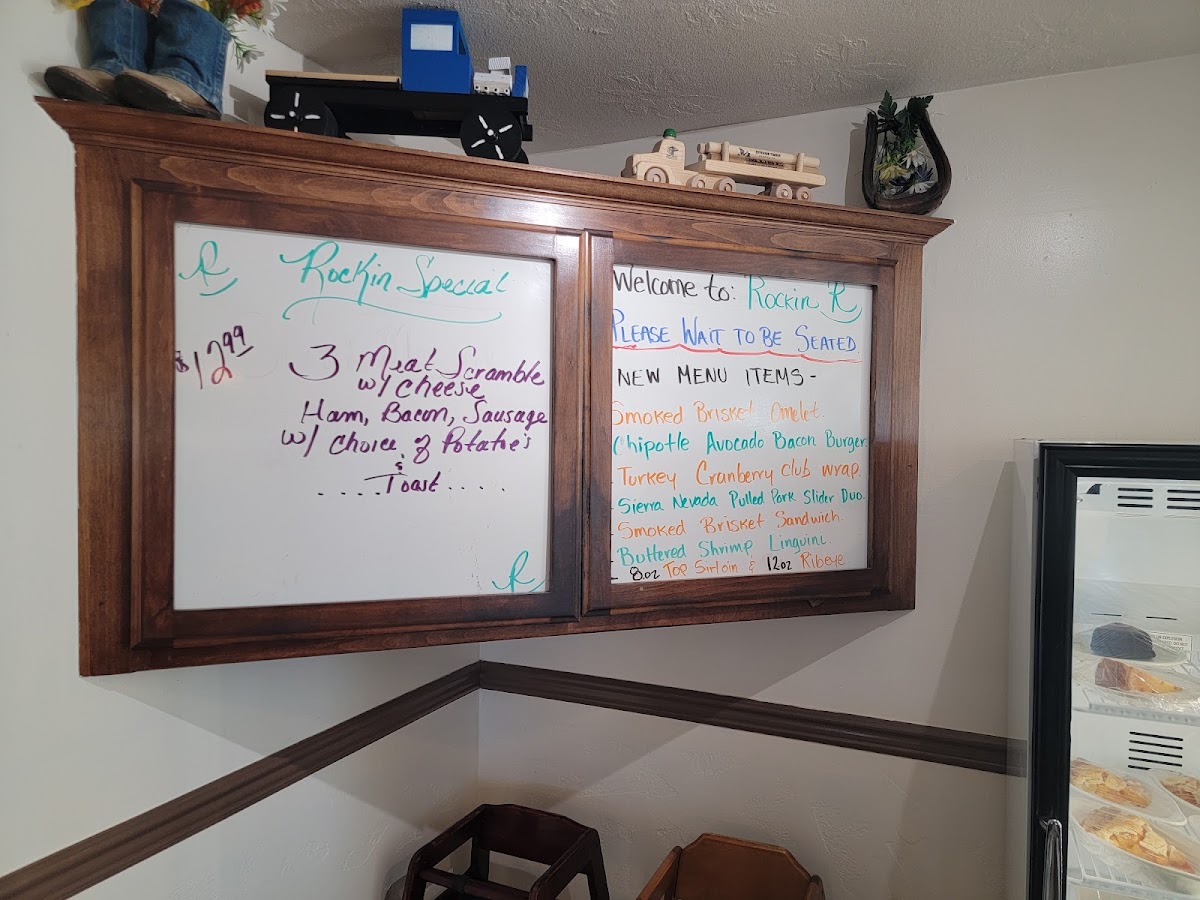 R
Rockin Special
$12.99
3 Meat Scramble
w/ cheese
Ham, Bacon, Sausage
w/ choice of Potatoe's
&
....Toast.....
R
Welcome to: Rockin R
PLEASE WAIT TO BE SEATED
NEW MENU ITEMS-
Smoked Brisket Omelet.
Chipotle Avocado Bacon Burger
- Turkey Cranberry club wrap.
- Sierra Nevada Pulled Pork Slider Duo.
- Smoked Brisket Sandwich.
- Buttered Shrimp Linguini.
- 8oz Top Sirloin & 12oz Ribeye